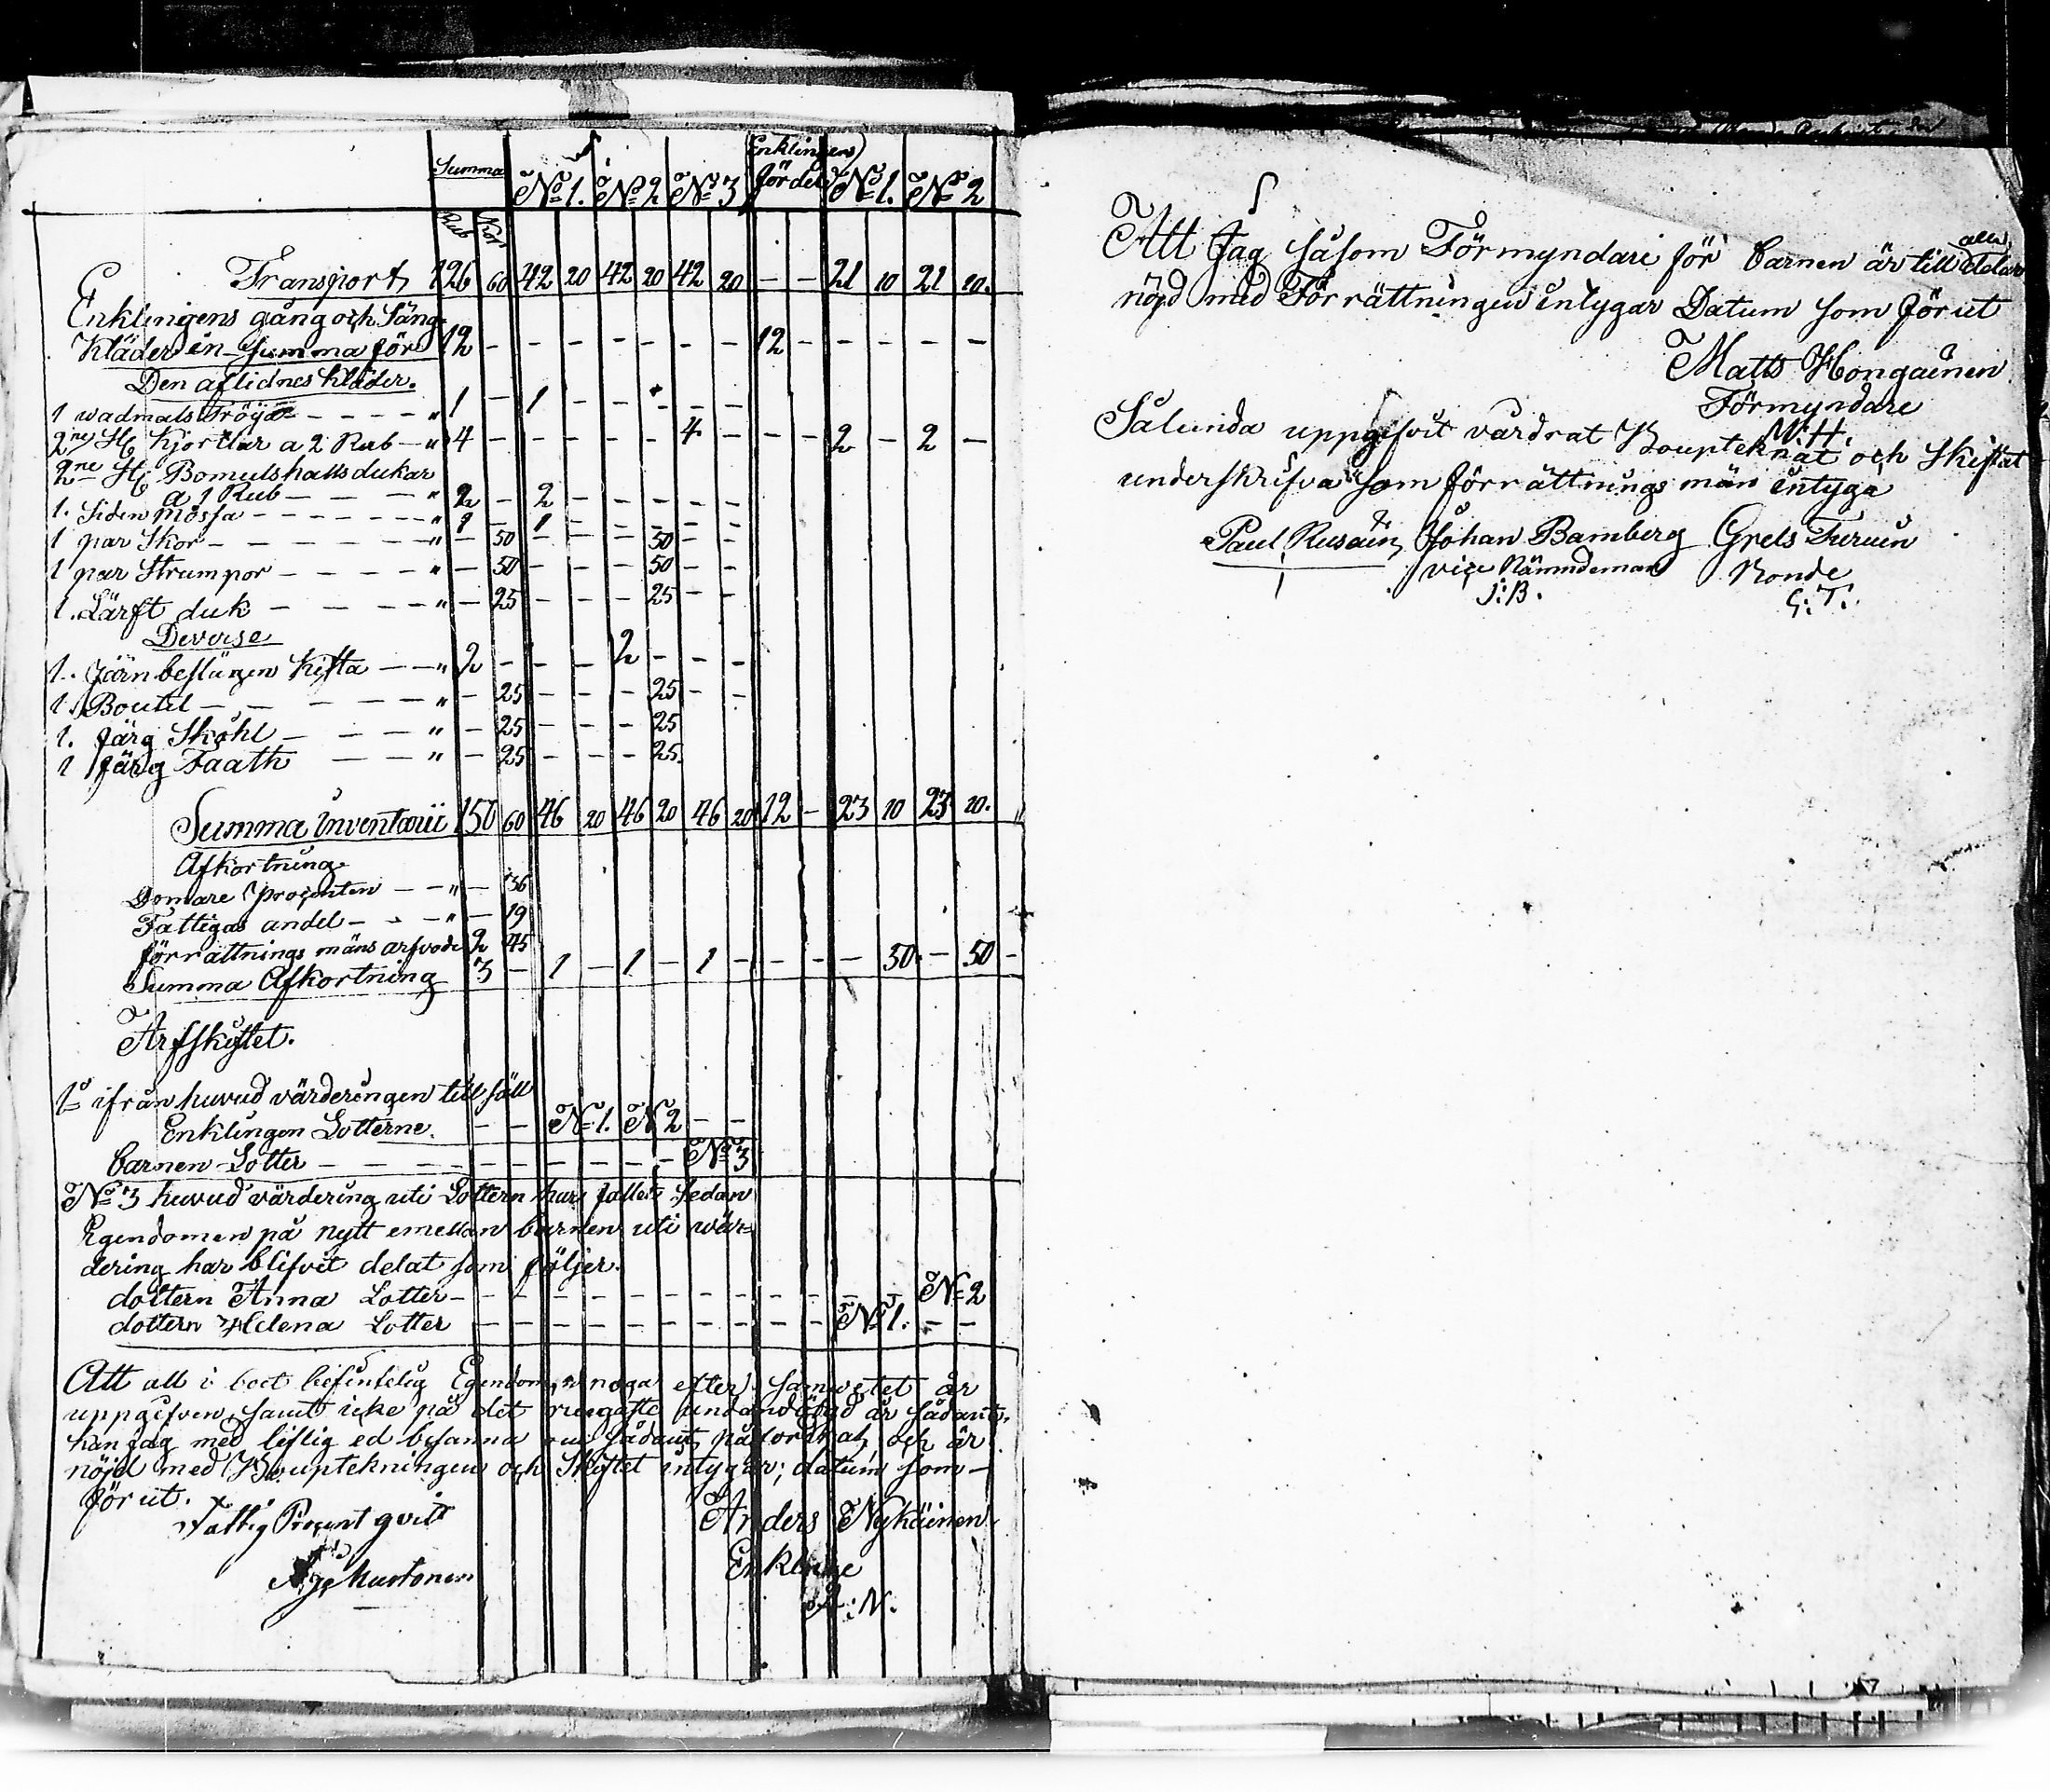 Summa Enklingens
N:o 1. N:o 2 N:o 3 fördel N:o 1. N:o 2
Rub Kop
Transport 126 60 42 20 42 20 42 20 — — 21 10 21 10.
Enklingens gång och Säng-
Kläder in Summa för 12 — — — — — — — 12 — — — — —
Den aflidnes Kläder.
1 wadmals Tröya — — — — " 1 — 1 — — — — —
2ne St Kjortlar a 2 Rub — " 4 — — — — — 4 — — — 2 — 2 —
2ne St Bomulshalsdukar
a 1 Rub — — — " 2 — 2 — — — — —
1. Siden mössa — — — — — " 1 — 1 — — — — —
1 par Skor — — — — — " — 50 — — — 50 — —
1 par Strumpor — — — — " — 50 — — — 50 — —
1. Lärft duk — — — — " — 25 — — — 25 — —
Deverse
1. Järnbeslagen Kista — — " 2 — — — 2 — — —
1. Boutel — — — — — " — 25 — — — 25 — —
1. färg Skåhl — — — " — 25 — — — 25
1 färg Faath — — — " — 25 — — — 25.
Summa Inventarii 150 60 46 20 46 20 46 20 12 — 23 10 23 10.
Afkortning
Domare Procenten — — " — 36
Fattigas andel — — — " — 19
förrättnings mäns arfvode 2 45
Summa Afkortning 3 — 1 — 1 — 1 — — — — 50. — 50 —
Arfskiftet.
1o ifrån huvud värderingen till föll
Enklingen Lotterne. — — N:o 1. N 2 — —
barnen Lotter — — — — — — — — — — N:o 3
N:o 3 huvud värdering uti Lottern har fallet sedan
Egendomen på nytt emellan barnen uti wär=
dering har blifvit delat som följer.
dottern Anna Lotter — — — — — — — — — — — N:o 2
dottern Helena Lotter — — — — — — — — — N:o 1. — —
Att all i boet befintelig Egendom noga efter samvetet är
uppgifven samt icke på det ringaste undandölgd är sådant.
kan jag med liflig ed besanna om sådant påfordrat, och är
nöjd med Bouptekningen och Skiftet intygar; datum som—
för ut.
Fattig Procent qvitt Anders Nykäinen
Enkling
A: N.
Att Jag såsom Förmyndari för barnen är till alla delar
nöjd med Förrättningen intygar Datum som förut
Matts Hongainen
Förmyndare
M: H.
Salunda uppgifvit värdrat Boupteknat och Skiftat
underskrifva som förrättnings män intyga
Paul Rusain Johan Bamberg Grels Turuin
vice Nämndeman Bonde
J: B. G: T: